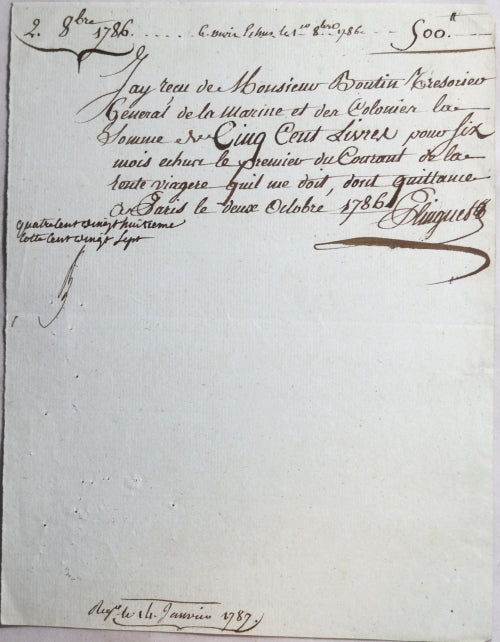 2. 8bre 1786. 6. mois Echus le 1er 8bre 1786. 500.tt
J'ay recu de Monsieur Boutin Tresorier
Général de la Marine et des Colonies la
Somme de Cinq Cent Livres, pour six
mois echus le premier du Courant de la
rente viagere quil me doit, dont quittance
a Paris le deux Octobre 1786.
quatre Cent vingt huitieme
Cotte Cent vingt Sept
le 14. Janvier 1787.